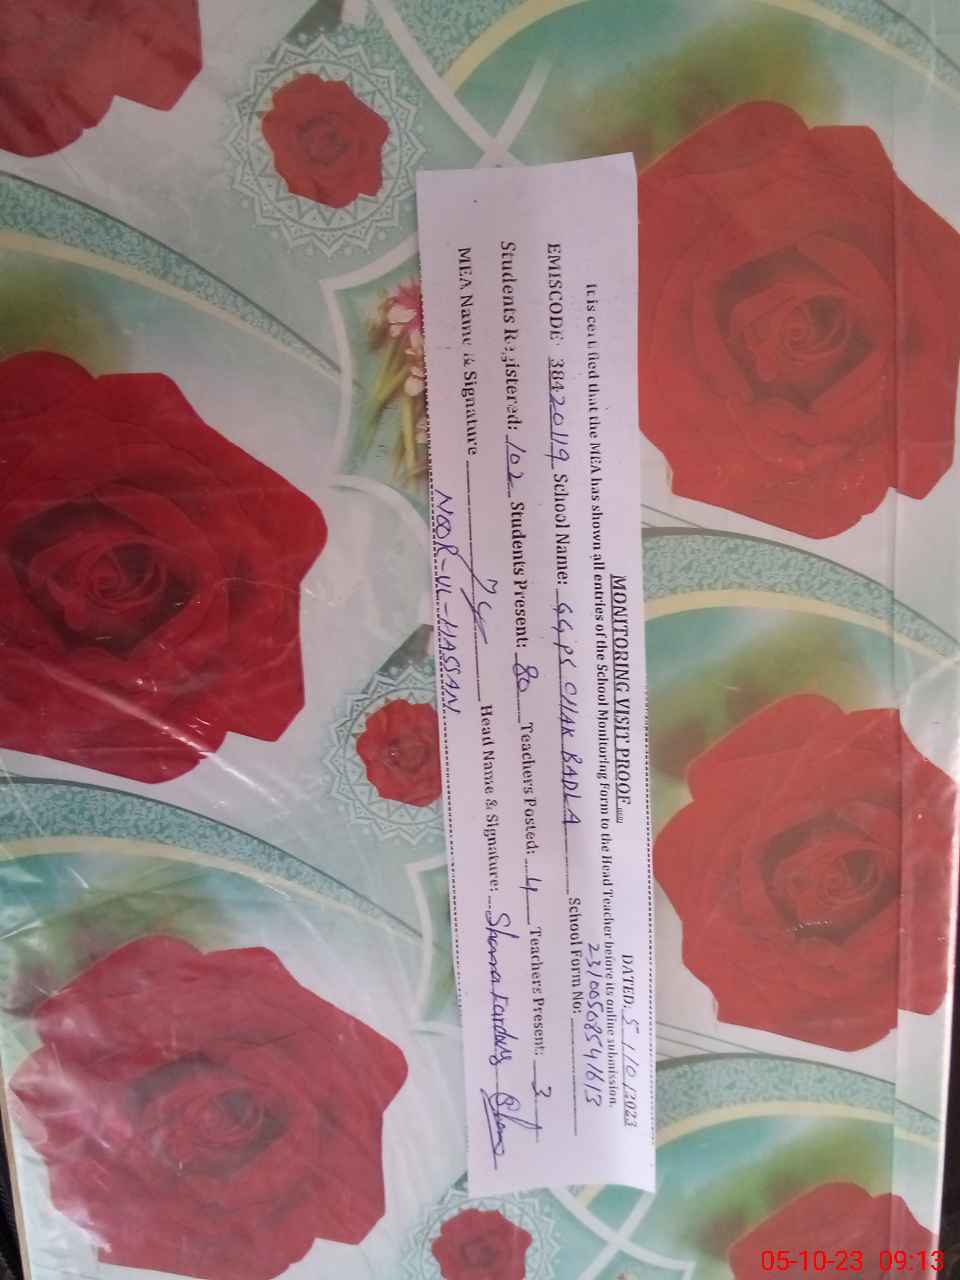 MONITORING VISIT PROOF
DATED: 5/10/2023
It is certified that the MEA has shown all entries of the School Monitoring Form to the Head Teacher before its online submission.
23100508541613
EMISCODE: 38420119 School Name: GGPS CHAK BADLA School Form No:
Students Registered: 102 Students Present: 80 Teachers Posted: 4 Teachers Present: 3
MEA Name & Signature Head Name & Signature:
NOOR-UL-HASSAN
05-10-23 09:13